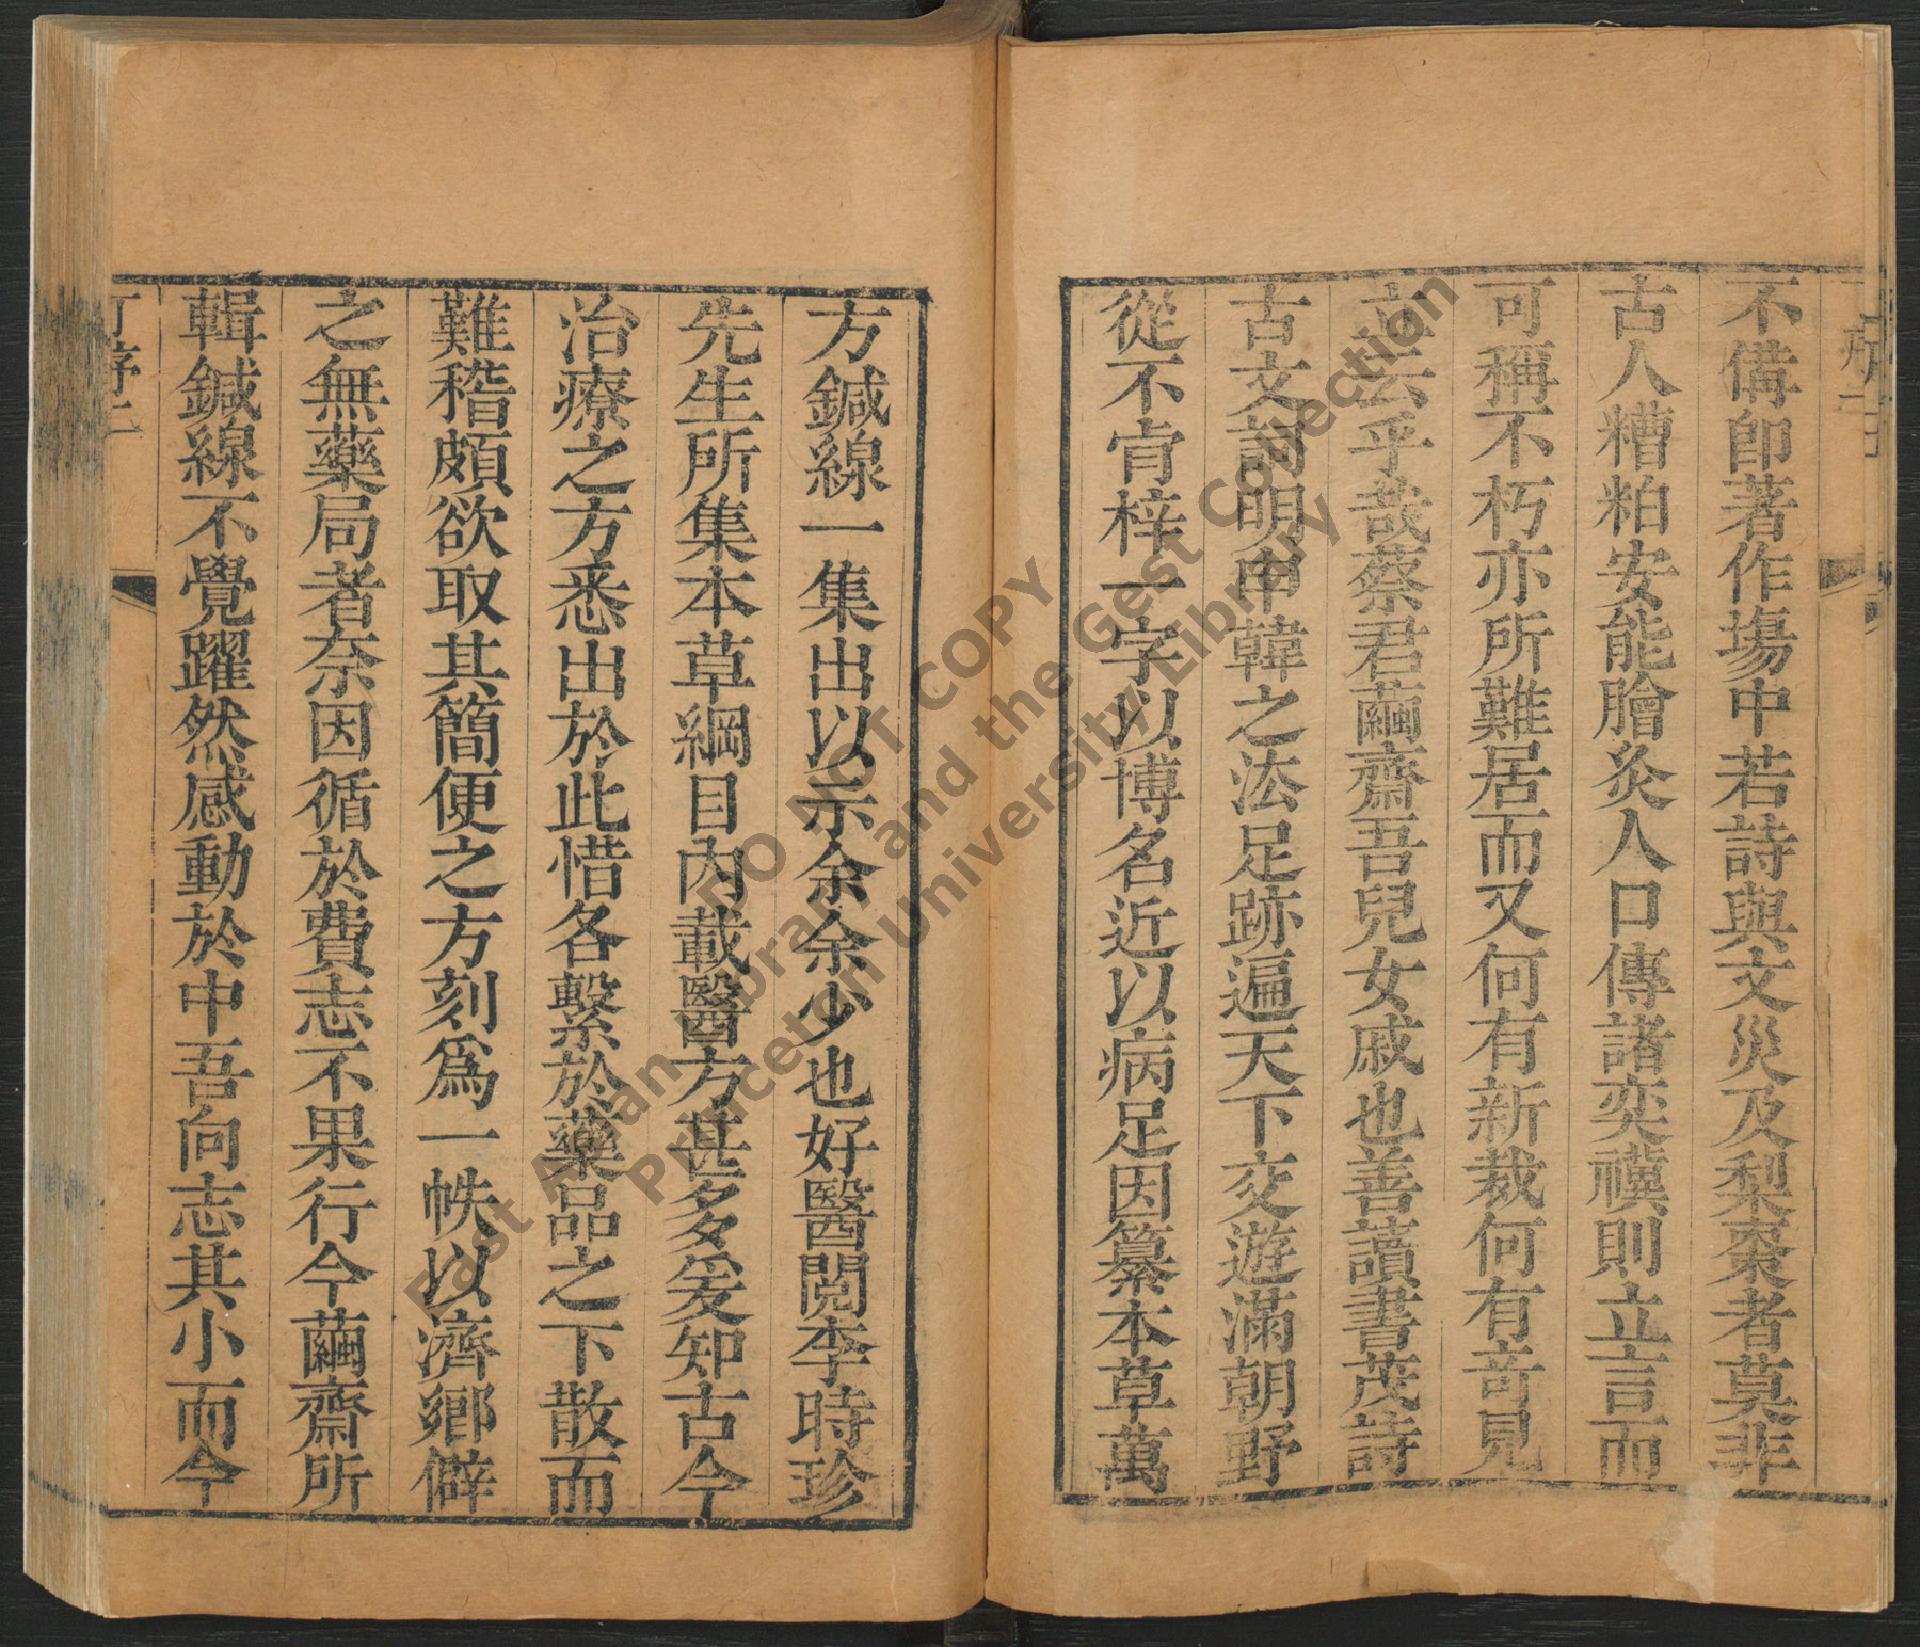 不備即著作場中若詩與文災及梨棗者莫非
古人糟粕安能膾炙人口傳諸奕禩則立言而
可稱不朽亦所難居而又何有新裁何有奇見
云乎哉蔡君繭齋吾兒女戚也善讀書茂詩
古文詞明申韓之法足跡遍天下交遊滿朝野
從不肯梓一字以博名近以病足因纂本草萬
方鍼線一集出以示余余少也好醫閱李時珍
先生所集本草綱目內載醫方甚多爰知古今
治療之方悉出於此惜各繫於藥品之下散而
難稽頗欲取其簡便之方刻爲一帙以濟鄉僻
之無藥局者奈因循於費志不果行今繭齋所
輯鍼線不覺躍然感動於中吾向志其小而今
East Asian Library and the Gest Collection
Princeton University Library
DO NOT COPY